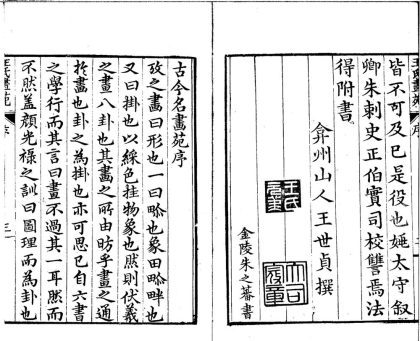 皆不可及已是役也㛂太守叙
卿朱刺史正伯實司校讐焉法
得附書
弇州山人王世貞撰
王氏
金陵朱之蕃書
古今名畫苑序
攷之畫曰形也一曰畛也象田畛畔也
又曰掛也以綵色挂物象也然則伏羲
之畫八卦也其畫之所由昉乎畫之通
於畫也卦之為掛也亦可思已自六書
之學行而其言曰畫不過其一耳然而
不然盖顏光祿之訓曰圖理而為卦也
王氏畫苑
序